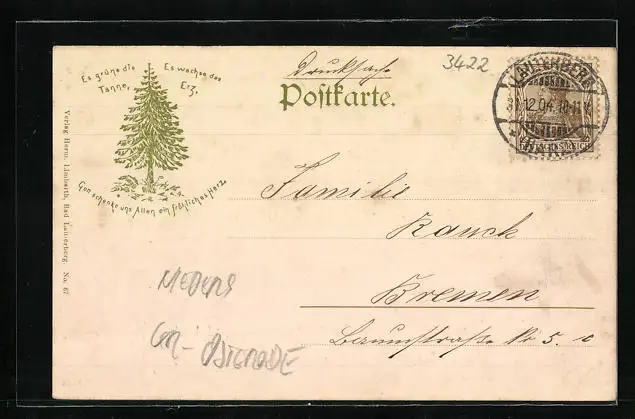 Es grüne die Tanne,
Es wachse das Erz,
Gott schenke uns Allen ein fröhliches Herz
Drucksache
Postkarte.
3422
LAUTERBERG
31.12.04.10-11V
DEUTSCHES REICH
Verlag Herm. Limbarth, Bad Lauterberg. No. 67
Familie
Rauck
Bremen
Baumstraße No 5. c